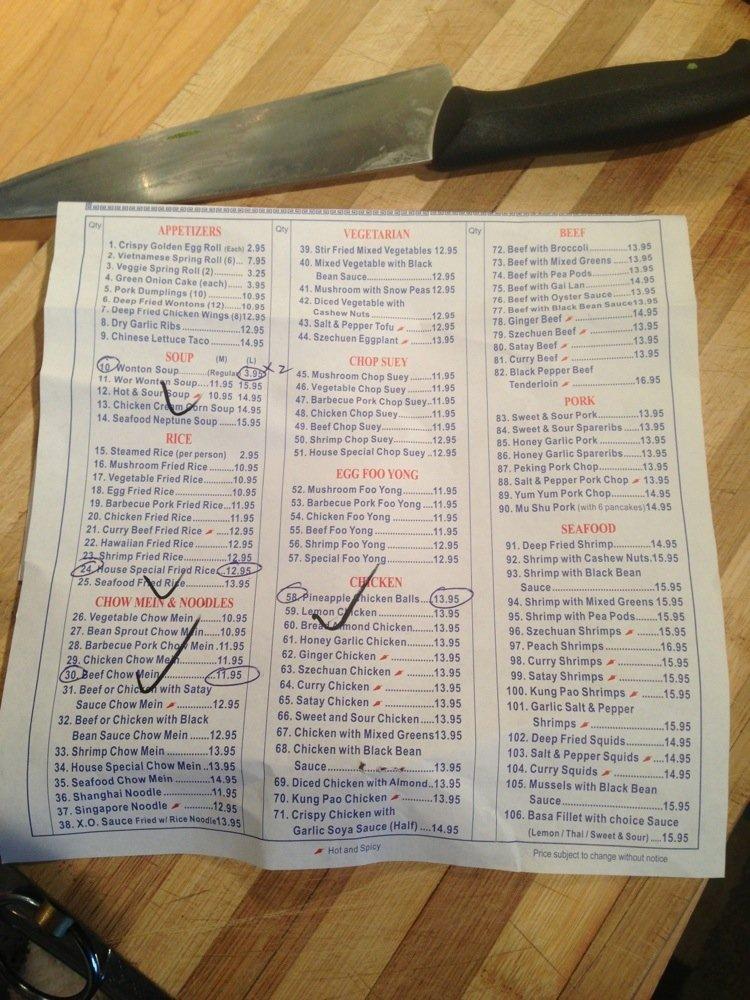 Qty
APPETIZERS
1. Crispy Golden Egg Roll (Each) 2.95
2. Vietnamese Spring Roll (6)... 7.95
3. Veggie Spring Roll (2) 3.25
4. Green Onion Cake (each) 3.95
5. Pork Dumplings (10) 10.95
6. Deep Fried Wontons (12) 10.95
7. Deep Fried Chicken Wings (8) 12.95
8. Dry Garlic Ribs 12.95
9. Chinese Lettuce Taco 14.95
SOUP (M) (L)
10. Wonton Soup (Regular) 3.95 x2
11. Wor Wonton Soup 11.95 15.95
12. Hot & Sour Soup 10.95 14.95
13. Chicken Cream Corn Soup 14.95
14. Seafood Neptune Soup 15.95
RICE
15. Steamed Rice (per person) 2.95
16. Mushroom Fried Rice 10.95
17. Vegetable Fried Rice 10.95
18. Egg Fried Rice 10.95
19. Barbecue Pork Fried Rice 11.95
20. Chicken Fried Rice 11.95
21. Curry Beef Fried Rice 12.95
22. Hawaiian Fried Rice 12.95
23. Shrimp Fried Rice 12.95
24. House Special Fried Rice 12.95
25. Seafood Fried Rice 13.95
CHOW MEIN & NOODLES
26. Vegetable Chow Mein 10.95
27. Bean Sprout Chow Mein 10.95
28. Barbecue Pork Chow Mein 11.95
29. Chicken Chow Mein 11.95
30. Beef Chow Mein 11.95
31. Beef or Chicken with Satay
Sauce Chow Mein 12.95
32. Beef or Chicken with Black
Bean Sauce Chow Mein 12.95
33. Shrimp Chow Mein 13.95
34. House Special Chow Mein 13.95
35. Seafood Chow Mein 14.95
36. Shanghai Noodle 11.95
37. Singapore Noodle 12.95
38. X.O. Sauce Fried w/ Rice Noodle 13.95
Qty
VEGETARIAN
39. Stir Fried Mixed Vegetables 12.95
40. Mixed Vegetable with Black
Bean Sauce 12.95
41. Mushroom with Snow Peas 12.95
42. Diced Vegetable with
Cashew Nuts 12.95
43. Salt & Pepper Tofu 12.95
44. Szechuen Eggplant 13.95
CHOP SUEY
45. Mushroom Chop Suey 11.95
46. Vegetable Chop Suey 11.95
47. Barbecue Pork Chop Suey 11.95
48. Chicken Chop Suey 11.95
49. Beef Chop Suey 11.95
50. Shrimp Chop Suey 12.95
51. House Special Chop Suey 12.95
EGG FOO YONG
52. Mushroom Foo Yong 11.95
53. Barbecue Pork Foo Yong 11.95
54. Chicken Foo Yong 11.95
55. Beef Foo Yong 11.95
56. Shrimp Foo Yong 12.95
57. Special Foo Yong 12.95
CHICKEN
58. Pineapple Chicken Balls 13.95
59. Lemon Chicken 13.95
60. Bread Almond Chicken 13.95
61. Honey Garlic Chicken 13.95
62. Ginger Chicken 13.95
63. Szechuan Chicken 13.95
64. Curry Chicken 13.95
65. Satay Chicken 13.95
66. Sweet and Sour Chicken 13.95
67. Chicken with Mixed Greens 13.95
68. Chicken with Black Bean
Sauce 13.95
69. Diced Chicken with Almond 13.95
70. Kung Pao Chicken 13.95
71. Crispy Chicken with
Garlic Soya Sauce (Half) 14.95
Hot and Spicy
Qty
BEEF
72. Beef with Broccoli 13.95
73. Beef with Mixed Greens 13.95
74. Beef with Pea Pods 13.95
75. Beef with Gai Lan 14.95
76. Beef with Oyster Sauce 13.95
77. Beef with Black Bean Sauce 13.95
78. Ginger Beef 14.95
79. Szechuen Beef 13.95
80. Satay Beef 13.95
81. Curry Beef 13.95
82. Black Pepper Beef
Tenderloin 16.95
PORK
83. Sweet & Sour Pork 13.95
84. Sweet & Sour Spareribs 13.95
85. Honey Garlic Pork 13.95
86. Honey Garlic Spareribs 13.95
87. Peking Pork Chop 13.95
88. Salt & Pepper Pork Chop 13.95
89. Yum Yum Pork Chop 14.95
90. Mu Shu Pork (with 6 pancakes) 14.95
SEAFOOD
91. Deep Fried Shrimp 14.95
92. Shrimp with Cashew Nuts 15.95
93. Shrimp with Black Bean
Sauce 15.95
94. Shrimp with Mixed Greens 15.95
95. Shrimp with Pea Pods 15.95
96. Szechuan Shrimps 15.95
97. Peach Shrimps 16.95
98. Curry Shrimps 15.95
99. Satay Shrimps 15.95
100. Kung Pao Shrimps 15.95
101. Garlic Salt & Pepper
Shrimps 15.95
102. Deep Fried Squids 14.95
103. Salt & Pepper Squids 14.95
104. Curry Squids 14.95
105. Mussels with Black Bean
Sauce 15.95
106. Basa Fillet with choice Sauce
(Lemon / Thai / Sweet & Sour) 15.95
Price subject to change without notice